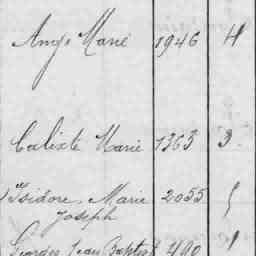 Ange Marie 1946 4
Calixte Marie 1363 3.
Isidore, Marie 2055
Joseph
Georges Jean Baptiste 490